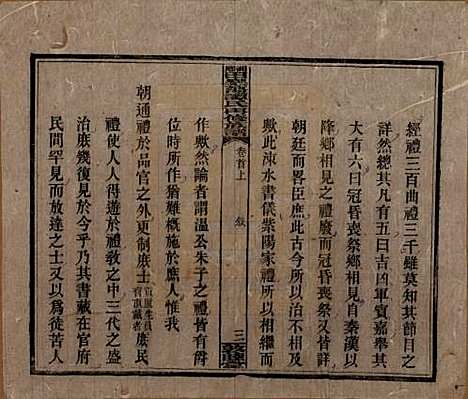 經禮三百曲禮三千雖莫知其節目之
詳然總其凡有五曰吉凶軍賓嘉舉其
大有六曰冠昏喪祭鄉相見自秦漢以
降鄉相見之禮廢而冠昏喪祭又皆詳
朝廷而畧臣庶此古今所以治不相及
歟此涑水書儀紫陽家禮所以相繼而
氏
卷首上
敘
三
作歟然論者謂溫公朱子之禮皆有爵
位時所作猶難概施於庶人惟我
朝通禮於品官之外更制庶士貢監生員有頂戴者庶民
禮使人人得遊於禮教之中三代之盛
治庶幾復見於今乎乃其書藏在官府
民間罕見而放達之士又以為徒苦人